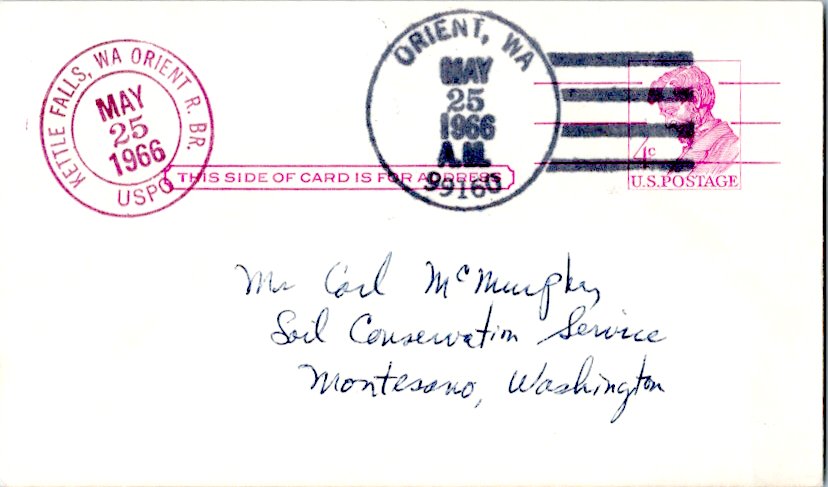 KETTLE FALLS, WA ORIENT R. BR.
MAY
25
1966
USPO
ORIENT, WA
MAY
25
1966
A.M.
99160
4c
U.S.POSTAGE
THIS SIDE OF CARD IS FOR ADDRESS
Mr Carl
Soil Conservation Service
Montesano, Washington